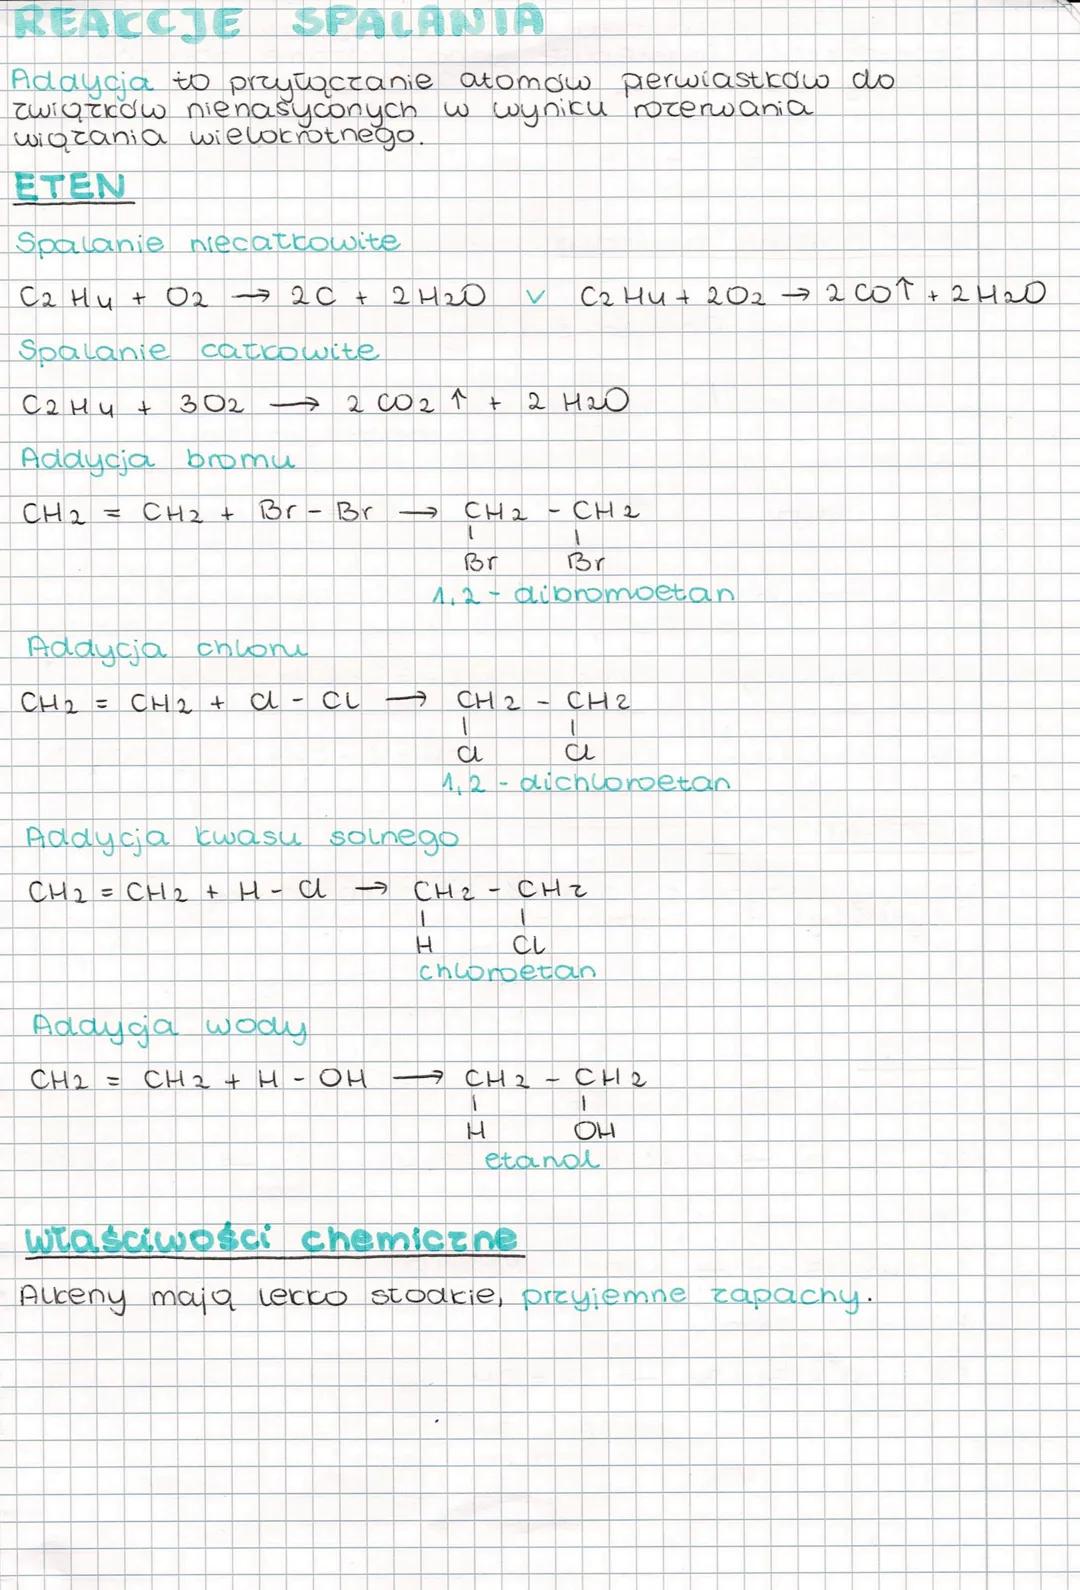 REAKCJE SPALANIA
Addycja to przyłączanie atomów pierwiastków do
związków nienasyconych w wyniku rozerwania
wiązania wielokrotnego.
ETEN
Spalanie niecałkowite
C2H4 + O2 → 2C + 2H2O v C2H4 + 2O2 → 2CO↑ + 2H2O
Spalanie całkowite
C2H4 + 3O2 → 2CO2↑ + 2H2O
Addycja bromu
CH2 = CH2 + Br - Br → CH2 - CH2
| |
Br Br
1,2 - dibromoetan
Addycja chloru
CH2 = CH2 + Cl - Cl → CH2 - CH2
| |
Cl Cl
1,2 - dichloroetan
Addycja kwasu solnego
CH2 = CH2 + H - Cl → CH2 - CH2
| |
H Cl
chloroetan
Addycja wody
CH2 = CH2 + H - OH → CH2 - CH2
| |
H OH
etanol
właściwości chemiczne
Alkeny mają lekko słodkie, przyjemne zapachy.